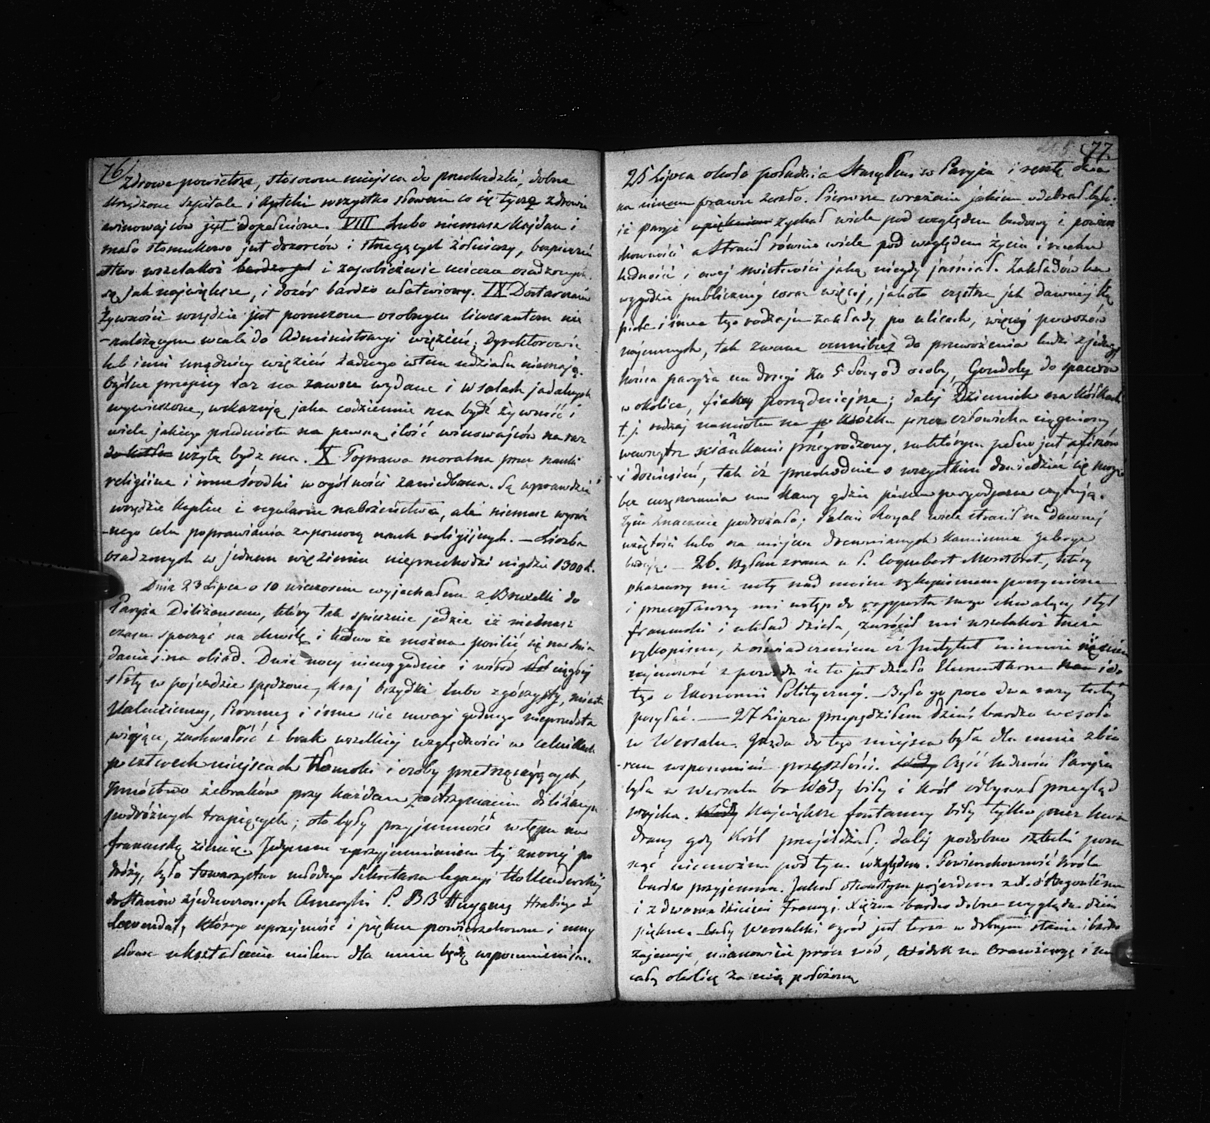 76/
zdrowe powietrze, stosowne miejsca do przechadzki, dobrze
urządzone szpitale i apteki wszystko słowem co się tycze zdrowia
winowajców jest dopełnione. VIII Lubo niemasz kajdan i
mało stosunkowo jest dozorców i strzegących żołnierzy, bezpieczeń
stwo wszelakoż bardzo jest i zapobieżenie ucieczce osadzonych
są jak największe, i dozór bardzo ułatwiony. IX Dostarczanie
żywności wszędzie jest poruczone osobnym liwerantom nie
-należącym wcale do Administracyi więzień; dyrektorowie
lub inni urzędnicy więzień żadnego w tem udziału niemają.
Ogólne przepisy raz na zawsze wydane i w salach jadalnych
wywieszone, wskazują jaka codziennie ma bydź żywność i
wiele jakiego przedmiotu na pewną ilość winowajców na raz
użyte bydź ma. X Poprawa moralna przez nauki
religijne i inne środki w ogólności zaniedbana. Są wprawdzie
wszędzie kaplice i regularne nabożeństwa, ale niemasz wyraź
-nego celu poprawiania zapomocą nauk religijnych. — Liczba
osadzonych w jednem więzieniu nieprzechodzi nigdzie 1300 d.
Dnia 23 Lipca o 10 wieczorem wyjechałem z Bruxelli do
Paryża Diliżansem, który tak spiesznie jedzie iż niemasz
czasu spocząć na chwilę i ledwo że można posilić się na śnia
daniu i na obiad. Dwie nocy niewygodnie i wśród ciągłej
słoty w pojeździe spędzone, kraj brzydki lubo z górzysty, miasta
Valencienny, Peronne i inne nic uwagi godnego nieprzedsta
wiające, zuchwałość i brak wszelkiej względności w celnikach
po czterech miejscach tłomoki i osoby przetrząsających,
mnóstwo żebraków przy każdem zatrzymaniu diliżansu
podróżnych trapiących; oto były przyjemności wstępu na
francuską ziemię. Jedynem uprzyjemnieniem tej znojnej po
dróży, było towarzystwo młodego Sekretarza legacyi Hollenderskiej
do Stanów zjednoczonych Ameryki P. BB Huygens Hrabiego de
Loevendal, którego uprzejmość i piękne powierzchowne i umy
słowe ukształcenie miłem dla mnie będą wspomnieniem.
77.
25 Lipca około południa stanąłem w Paryżu i resztę dnia
na niczem prawie zeszło. Pierwsze wrażenie jakiem odebrał było
iż paryż zyskał wiele pod względem budowy i powierz
chowności a stracił równie wiele pod względem życia i ruchu
ludności i owej świetności jaką niegdy jaśniał. Zakładów ku
wygodzie publicznej coraz więcej, jakoto częstsze jak dawniej ką
piele i inne tego rodzaju zakłady po ulicach, więcej powozów
najemnych, tak zwane omnibus do przewożenia ludzi z jednego
końca paryża na drugi za 5 Sous od osoby, Gondole do spaceru
w okolice, fiakry porządniejsze; dalej Dzienniki na kółkach
t.j. rodzaj namiotu na wózku przez człowieka ciągniony
wewnątrz ściankami przegrodzony, na których pełno jest afiszów
i doniesień, tak iż przechodnie o wszystkiem dowiedzieć się mogą
bez uczęszczania na kawy gdzie pisma peryodyczne czytują.
Życie znacznie podrożało; Palais Royal wiele stracił na dawnej
wziętości lubo na miejscu drewnianych kamienne galerye
budują. — 26. Byłem zrana u P. Coquebert Montbret, który
okazawszy mi notę nad moim rękopismem poczynione
i przeczytawszy mi wstęp do rapportu swego chwalący styl
francuski i układ dzieła, zwrócił mi wszelakoż tenże
rękopism, z oświadczeniem iż Instytut niemoże
zajmować z powodu iż to jest dzieło Elementarne i do
tego o Ekonomii Politycznej. — Byłem go poco dwa razy tutaj
posyłać. — 27 Lipca przepędziłem dzień bardzo wesoło
w Wersalu. Jazda do tego miejsca była dla mnie zbio
rem wspomnień przeszłości. Część ludności Paryża
była w Wersalu bo Wody biły i król odbywał przegląd
wojska. Największe fontanny biły tylko przez kwa
drans gdy król przejeżdżał. Dalej podobno sztuki posu
nąć niemożna pod tym względem. Powierzchowność króla
bardzo przyjemna. Jechał otwartym pojazdem z X. d'Angoulême
i z dwoma dziećmi Francyi. Xiężna bardzo dobrze wygląda, dzieci
piękne. Cały Wersalski ogród jest teraz w dobrym stanie i bardzo
zajmuje, mianowicie przez wód, widok na Oranżeryę i na
całą okolicę za nią położoną